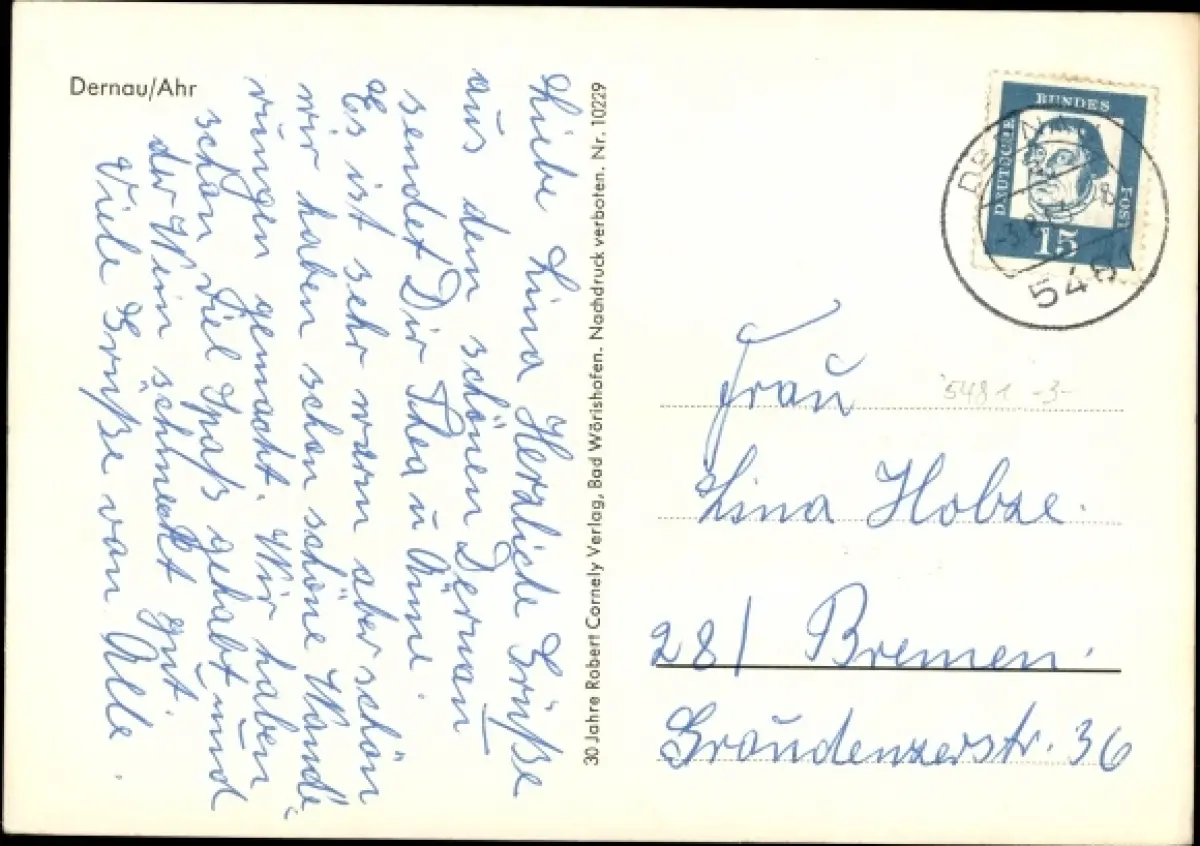 Dernau/Ahr
Liebe Lina Herzliche Grüße
aus dem schönen Dernau
sendet Dir Thea u Änne.
Es ist sehr warm aber schön
wir haben schon schöne Wande-
rungen gemacht. Wir haben
schon viel Spaß gehabt und
der Wein schmeckt gut.
Viele Grüße von Alle.
30 Jahre Robert Cornely Verlag, Bad Wörishofen. Nachdruck verboten. Nr. 10229
DEUTSCHE
BUNDES
POST
15
Frau
5481 -3-
Lina Hobze.
28/ Bremen.
Graudenzerstr. 36